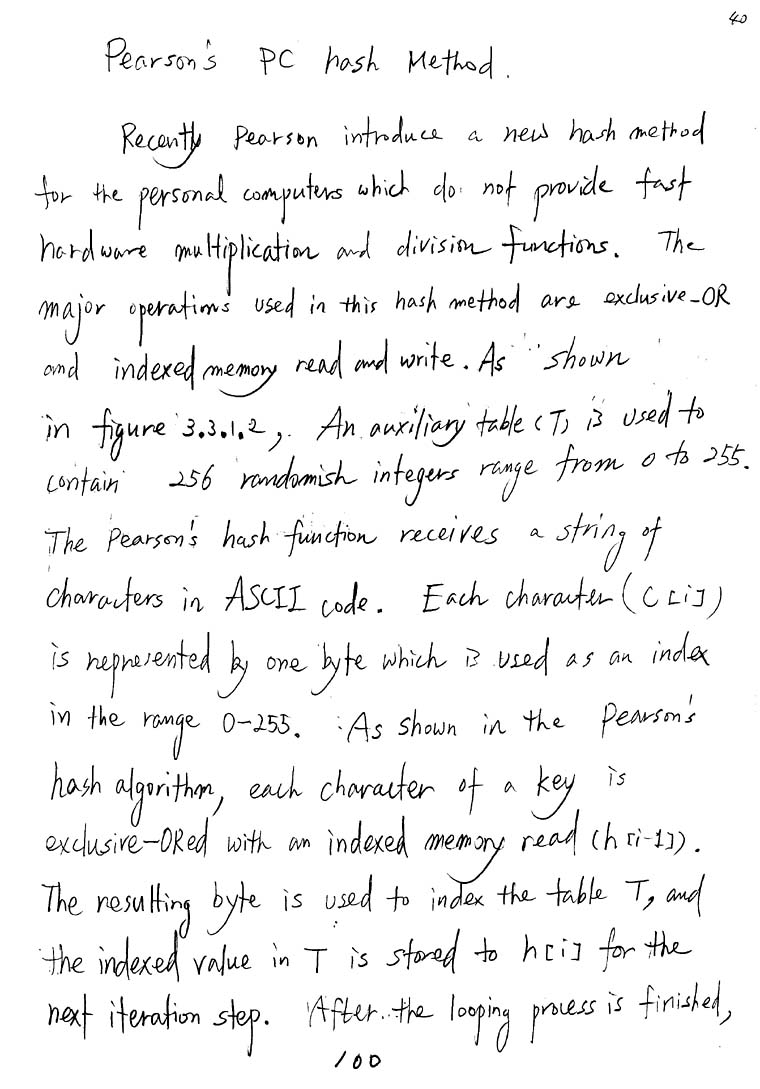 40
Pearson's PC hash Method.
Recently Pearson introduce a new hash method
for the personal computers which do not provide fast
hardware multiplication and division functions. The
major operations used in this hash method are exclusive-OR
and indexed memory read and write. As shown
in figure 3.3.1.2, An auxiliary table (T) is used to
contain 256 randomish integers range from 0 to 255.
The Pearson's hash function receives a string of
characters in ASCII code. Each character (C[i])
is represented by one byte which is used as an index
in the range 0-255. As shown in the Pearson's
hash algorithm, each character of a key is
exclusive-ORed with an indexed memory read (h[i-1]).
The resulting byte is used to index the table T, and
the indexed value in T is stored to h[i] for the
next iteration step. After the looping process is finished,
100